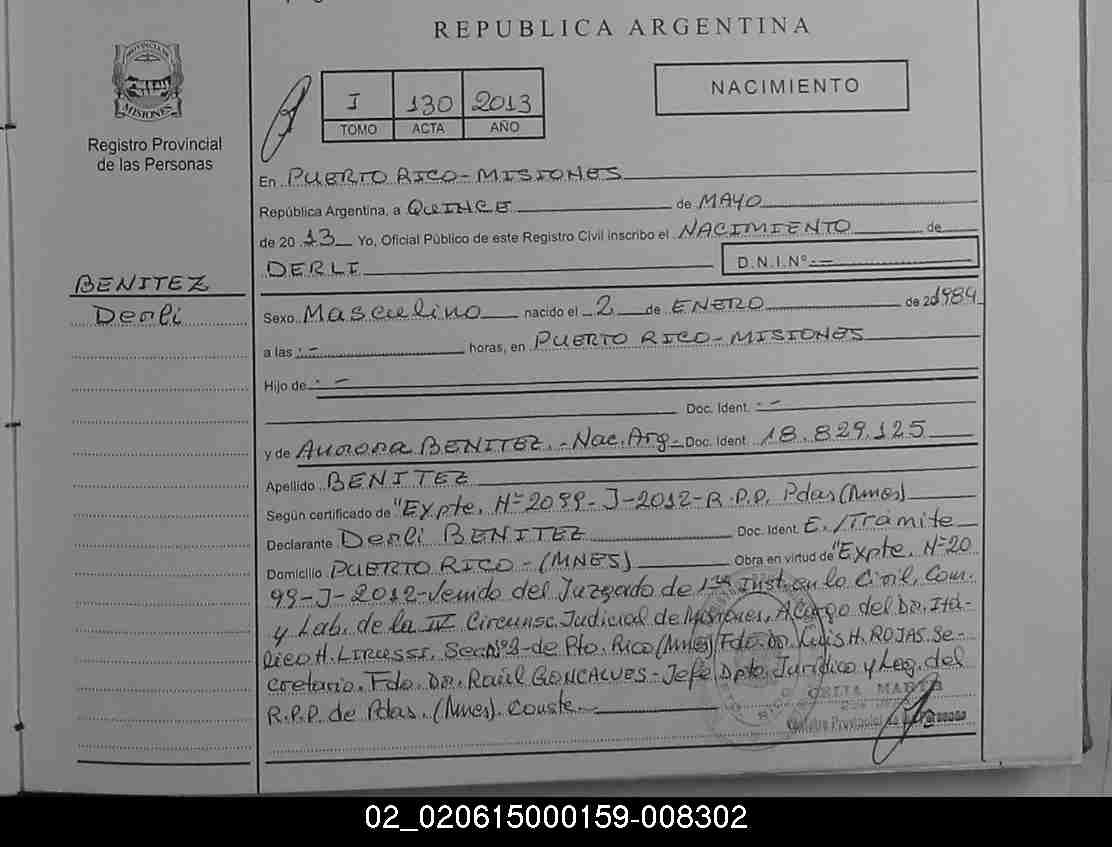 REPUBLICA ARGENTINA
PROVINCIA DE
MISIONES
Registro Provincial
de las Personas
I 130 2013
TOMO ACTA AÑO
NACIMIENTO
En PUERTO RICO - MISIONES
República Argentina, a QUINCE de MAYO
de 20 13 Yo, Oficial Público de este Registro Civil inscribo el NACIMIENTO de
DERLI D.N.I.Nº . -
BENITEZ
Derli
Sexo Masculino nacido el 2 de ENERO de 1984
a las . - horas, en PUERTO RICO - MISIONES
Hijo de . -
Doc. Ident. . -
y de Aurora BENITEZ. - Nac. Arg - Doc. Ident. 18.829.125
Apellido BENITEZ
Según certificado de "Expte. Nº 2099 - J - 2012 - R.P.P. Pdas (Mnes)
Declarante Derli BENITEZ Doc. Ident. E./Trámite
Domicilio PUERTO RICO - (MNES) Obra en virtud de "Expte. Nº 20
99 - J - 2012 - Venido del Juzgado de 1ra Inst. en lo Civil, Com.
y Lab. de la IV Circunsc. Judicial de Misiones, A cargo del Dr.
H. Sec. de Pto. Rico (Mnes) Fdo. Dr. Luis H. ROJAS. Se-
cretario. Fdo. Dr. Raúl GONCALVES - Jefe Dpto. Jurídico y Leg. del
R.P.P. de Pdas. (Mnes). Conste
CELIA
Registro Provincial de las Personas
02_020615000159-008302